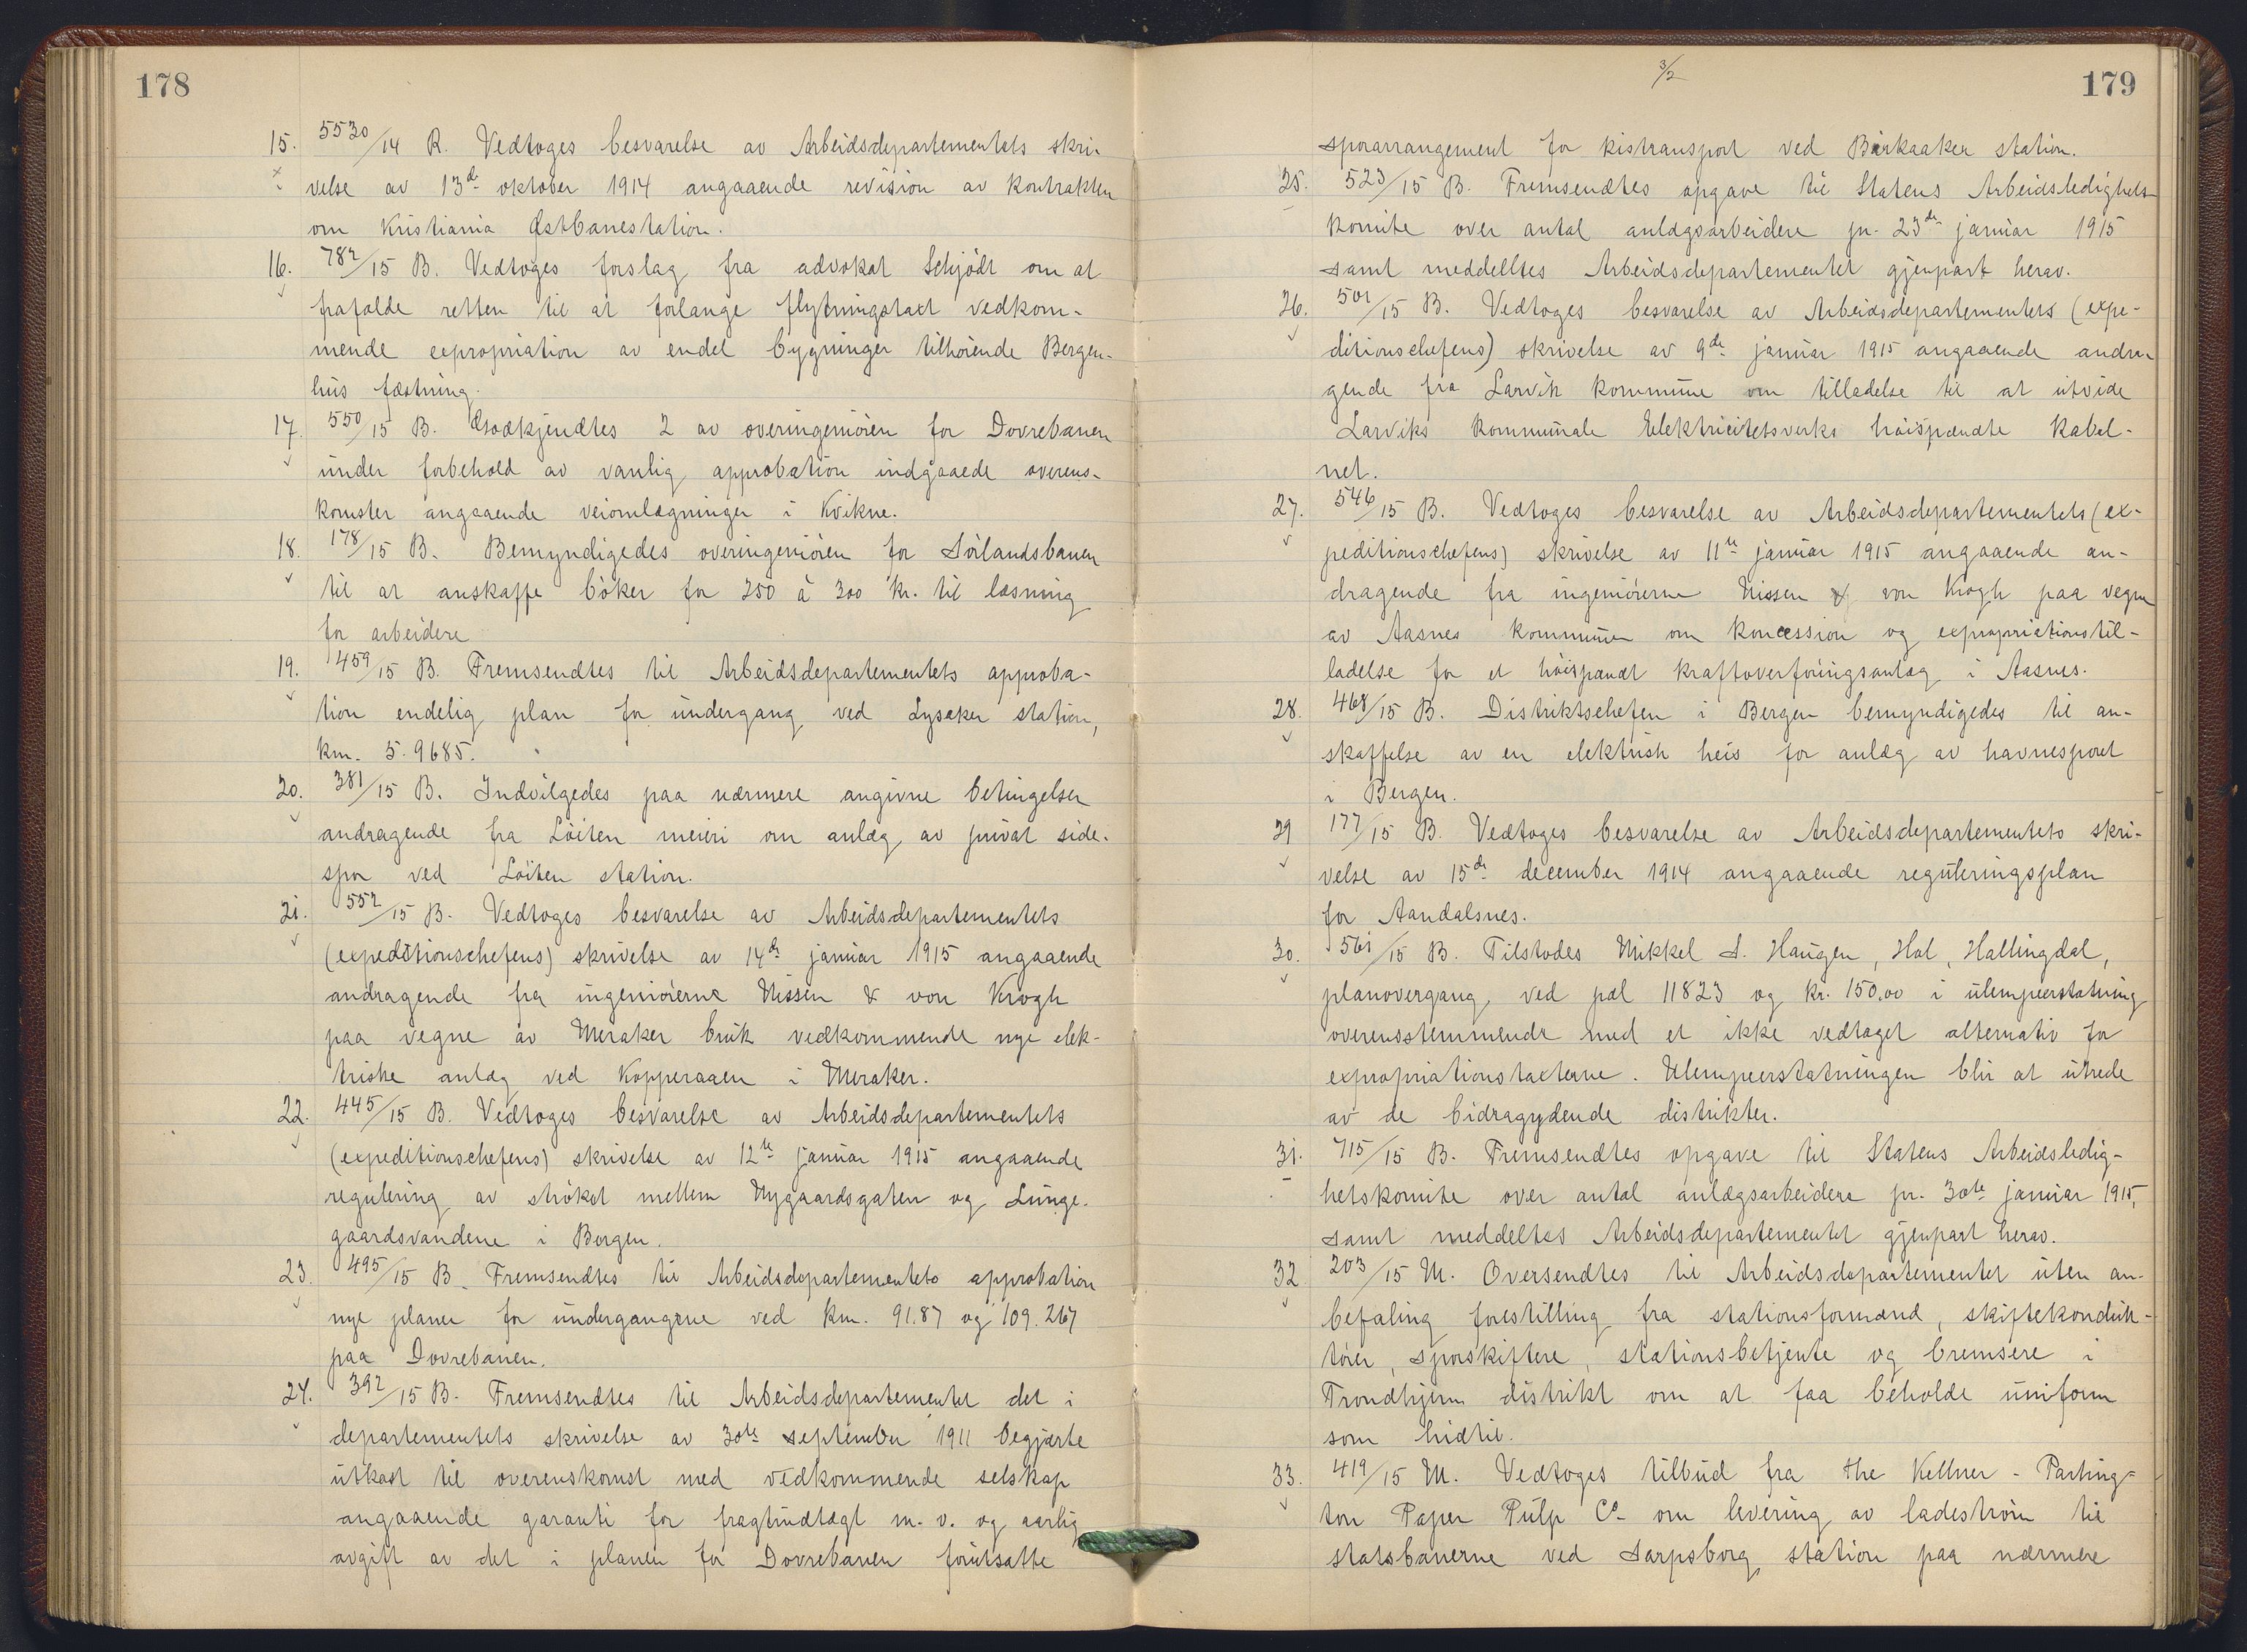 178
15. 5530/14 R. Vedtoges besvarelse av Arbeidsdepartementets skri-
velse av 13de oktober 1914 angaaende revision av kontrakten
om Kristiania Østbanestation.
16. 782/15 B. Vedtoges forslag fra advokat Schjödt om at
frafalde retten til at forlange flytningstaxt vedkom-
mende expropriation av endel bygninger tilhörende Bergen-
hus fæstning.
17. 550/15 B. Godkjendtes 2 av overingeniören for Dovrebanen
under forbehold av vanlig approbation indgaaede overens-
komster angaaende veiomlægninger i Kvikne.
18. 178/15 B. Bemyndigedes overingeniören for Sörlandsbanen
til at anskaffe böker for 250 à 300 kr. til læsning
for arbeidere
19. 459/15 B. Fremsendtes til Arbeidsdepartementets approba-
tion endelig plan for undergang ved Lysaker station,
km. 5.9685.
20. 381/15 B. Indvilgedes paa nærmere angivne betingelser
andragende fra Löiten meieri om anlæg av privat side-
spor ved Löiten station.
21. 552/15 B. Vedtoges besvarelse av Arbeidsdepartementets
(expeditionschefens) skrivelse av 14de januar 1915 angaaende
andragende fra ingeniörerne Nissen & von Krogh
paa vegne av Meraker bruk vedkommende nye elek-
triske anlæg ved Kopperaaen i Meraker.
22. 445/15 B. Vedtoges besvarelse av Arbeidsdepartementets
(expeditionschefens) skrivelse av 12te januar 1915 angaaende
regulering av ströket mellem Nygaardsgaten og Lunge-
gaardsvandene i Bergen.
23. 495/15 B. Fremsendtes til Arbeidsdepartementets approbation
nye planer for undergangene ved km. 91.87 og 109.267
paa Dovrebanen.
24. 392/15 B. Fremsendtes til Arbeidsdepartementet det i
departementets skrivelse av 30te september 1911 begjærte
utkast til overenskomst med vedkommende selskap
angaaende garanti for fragtindtægt m.v. og aarlig
avgift av det i planen for Dovrebanen forutsatte
3/2
179
sporarrangement for kistransport ved Birkaaker station.
25. 523/15 B. Fremsendtes opgave til Statens Arbeidsledighets-
komite over antal anlægsarbeidere pr. 23de januar 1915
samt meddelltes Arbeidsdepartementet gjenpart herav.
26. 501/15 B. Vedtoges besvarelse av Arbeidsdepartementets (expe-
ditionschefens) skrivelse av 9de januar 1915 angaaende andra-
gende fra Larvik kommune om tilladelse til at utvide
Larviks kommunale Elektricitetsverks höispændte kabel-
net.
27. 546/15 B. Vedtoges besvarelse av Arbeidsdepartementets (ex-
peditionschefens) skrivelse av 11te januar 1915 angaaende an-
dragende fra ingeniörerne Nissen & von Krogh paa vegne
av Aasnes kommune om koncession og expropriationstil-
ladelse for et höispændt kraftoverföringsanlæg i Aasnes.
28. 468/15 B. Distriktschefen i Bergen bemyndigedes til an-
skaffelse av en elektrisk heis for anlæg av havnesporet
i Bergen.
29 177/15 B. Vedtoges besvarelse av Arbeidsdepartementets skri-
velse av 15de december 1914 angaaende reguleringsplan
for Aandalsnes.
30. 561/15 B. Tilstodes Mikkel S. Haugen, Hol, Hallingdal,
planovergang ved pæl 11823 og kr. 150,00 i ulempeerstatning
overensstemmende med et ikke vedtaget alternativ for
expropriationstaxterne. Ulempeerstatningen blir at utrede
av de bidragydende distrikter.
31. 715/15 B. Fremsendtes opgave til Statens Arbeidsledig-
hetskomite over antal anlægsarbeidere pr. 30te januar 1915,
samt meddeltes Arbeidsdepartementet gjenpart herav.
32 203/15 M. Oversendtes til Arbeidsdepartementet uten an-
befaling forestilling fra stationsformænd, skiftekonduk-
törer, sporskiftere, stationsbetjente og bremsere i
Trondhjem distrikt om at faa beholde uniform
som hidtil.
33. 419/15 M. Vedtoges tilbud fra the Kellner - Parting-
ton Paper Pulp Co om levering av ladeström til
statsbanerne ved Sarpsborg station paa nærmere